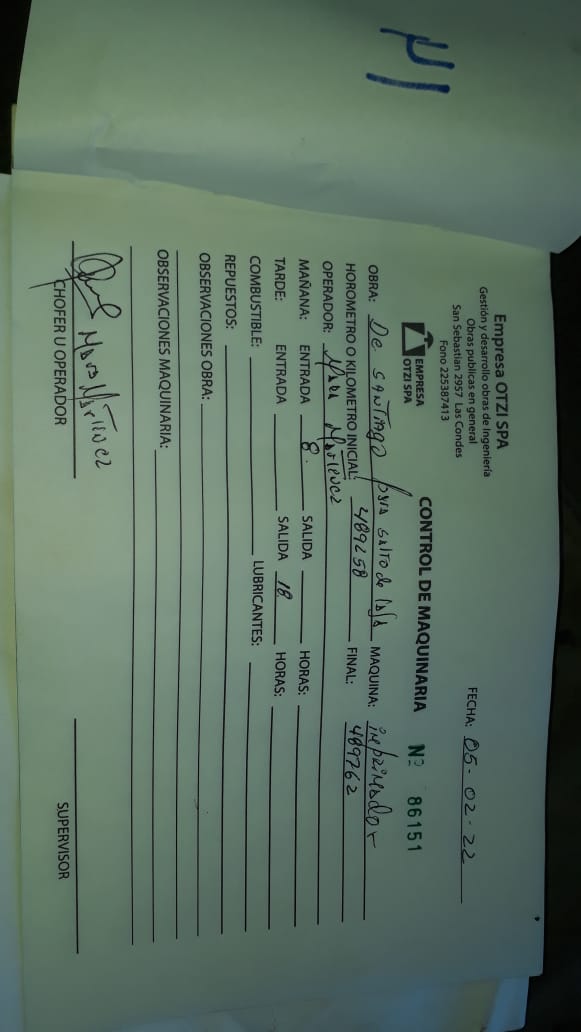 Empresa OTZI SPA
Gestión y desarrollo obras de Ingeniería
Obras publicas en general
San Sebastian 2957 Las Condes
Fono 225387413
EMPRESA
OTZI SPA
FECHA: 05-02-22
CONTROL DE MAQUINARIA Nº 86151
OBRA: De SANTIAGO para salto de laja MAQUINA: imprimador
HOROMETRO O KILOMETRO INICIAL: 489258 FINAL: 489762
OPERADOR: Martinez
MAÑANA: ENTRADA 8. SALIDA HORAS:
TARDE: ENTRADA SALIDA 18 HORAS:
COMBUSTIBLE: LUBRICANTES:
REPUESTOS:
OBSERVACIONES OBRA:
OBSERVACIONES MAQUINARIA:
Martinez
CHOFER U OPERADOR
SUPERVISOR